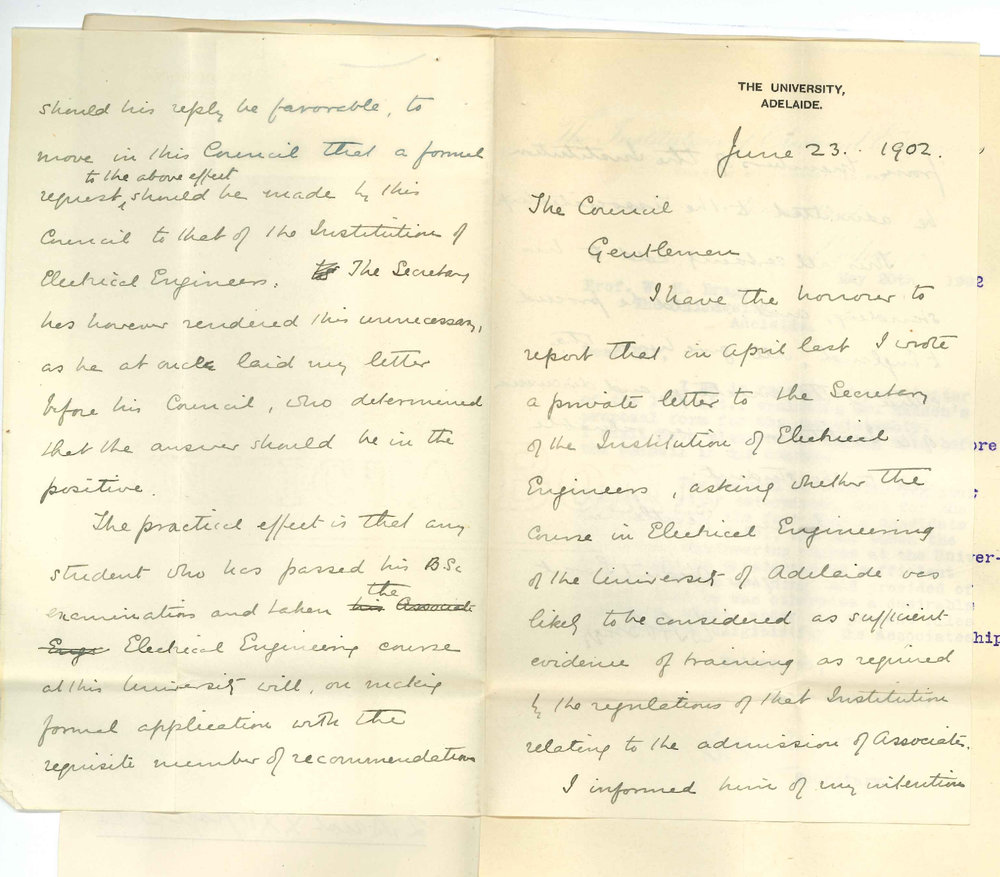 THE UNIVERSITY,
ADELAIDE.
June 23. 1902.
The Council
Gentlemen
I have the honour to
report that in April last I wrote
a private letter to the Secretary
of the Institution of Electrical
Engineers, asking whether the
course in Electrical Engineering
of the University of Adelaide was
likely to be considered as sufficient
evidence of training as required
by the regulations of that Institution
relating to the admission of Associates.
I informed him of my intention
should his reply be favorable, to
move in this Council that a formal
to the above effect
request should be made by this
Council to that of the Institution of
Electrical Engineers. to The Secretary
has however rendered this unnecessary,
as he at once laid my letter
before his Council, who determined
that the answer should be in the
positive.
The practical effect is that any
student who has passed his BSc
the
examination and taken his Associate
Engr Electrical Engineering course
at this University will, on making
formal application with the
requisite number of recommendations